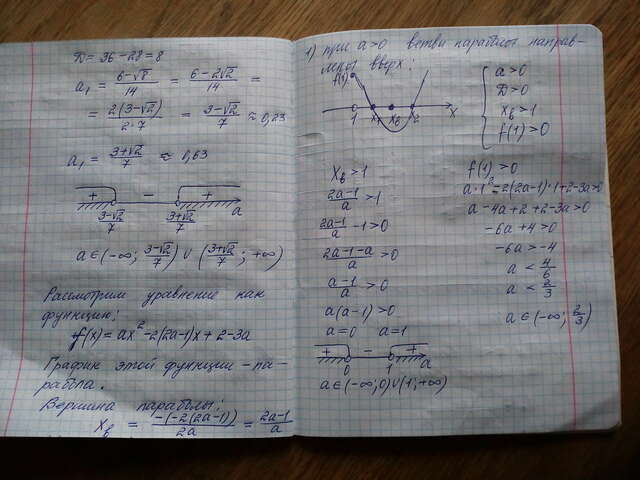 D = 36 − 28 = 8
a₁ = (6−√8)/14 = (6−2√2)/14 =
= 2(3−√2)/(2·7) = (3−√2)/7 ≈ 0,23
a₁ = (3+√2)/7 ≈ 0,63
+ − +
(3−√2)/7 (3+√2)/7 a
a ∈ (−∞; (3−√2)/7) ∪ ((3+√2)/7; +∞)
Рассмотрим уравнение как
функцию:
f(x) = ax² − 2(2a−1)x + 2 − 3a
График этой функции – па-
рабола.
Вершина параболы:
x_в = −(−2(2a−1))/2a = (2a−1)/a
1) при a>0 ветви параболы направ-
лены вверх:
f(1)
1 x₁ x_в 2 x
{ a>0
D>0
x_в>1
f(1)>0
x_в>1
(2a−1)/a >1
(2a−1)/a −1>0
(2a−1−a)/a >0
(a−1)/a >0
a(a−1)>0
a=0 a=1
+ − +
0 1 a
a∈(−∞;0)∪(1;+∞)
f(1)>0
a·1²−2(2a−1)·1+2−3a>0
a−4a+2+2−3a>0
−6a+4>0
−6a>−4
a < 4/6
a < 2/3
a∈(−∞; 2/3)